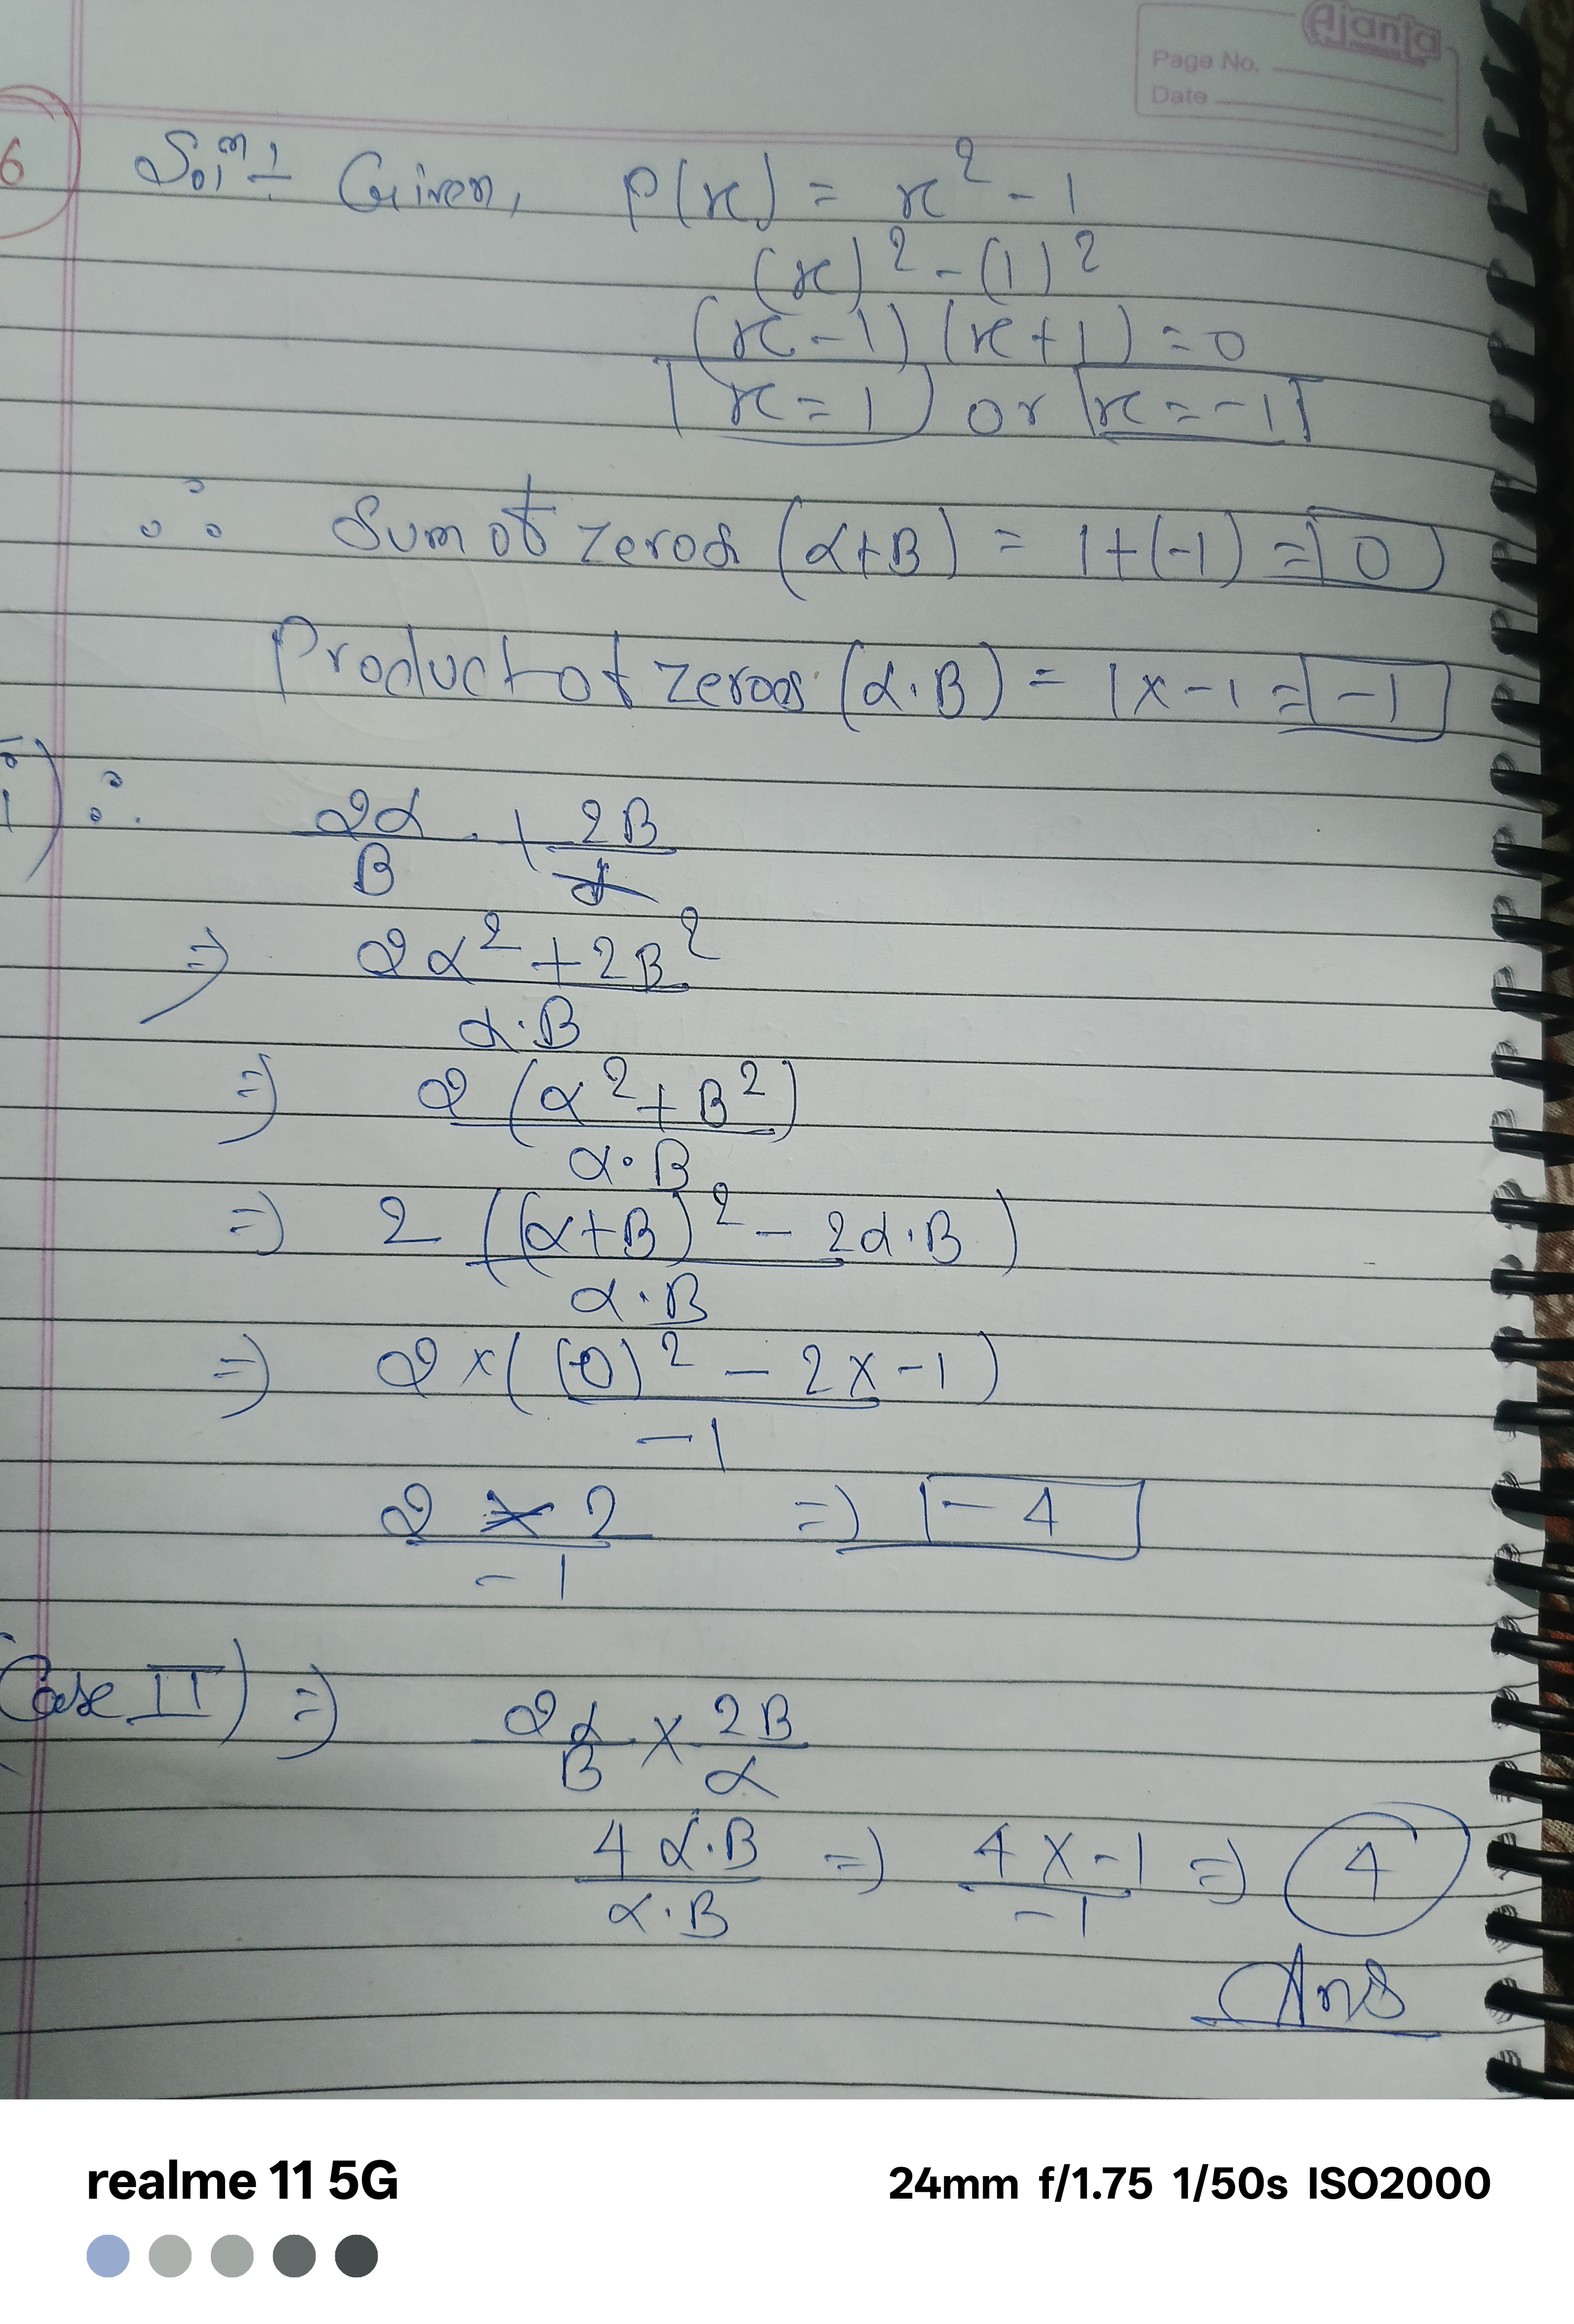 Ajanta
Page No.
Date
6 Soln:- Given, P(x) = x² - 1
(x)² - (1)²
(x-1) (x+1) = 0
x = 1 or x = -1
∴ Sum of zeros (α+B) = 1+(-1) = 0
Product of zeroes (α.B) = 1x-1 = -1
i) ∴ 2α/B + 2B/α
⇒ 2α² + 2B² / α.B
⇒ 2 (α² + B²) / α.B
⇒ 2 ((α+B)² - 2α.B) / α.B
⇒ 2 x ((0)² - 2x-1) / -1
2 x 2 / -1 ⇒ -4
(Case II) ⇒ 2α/B x 2B/α
4 α.B / α.B ⇒ 4 x -1 / -1 ⇒ 4
Ans
realme 11 5G
24mm f/1.75 1/50s ISO2000